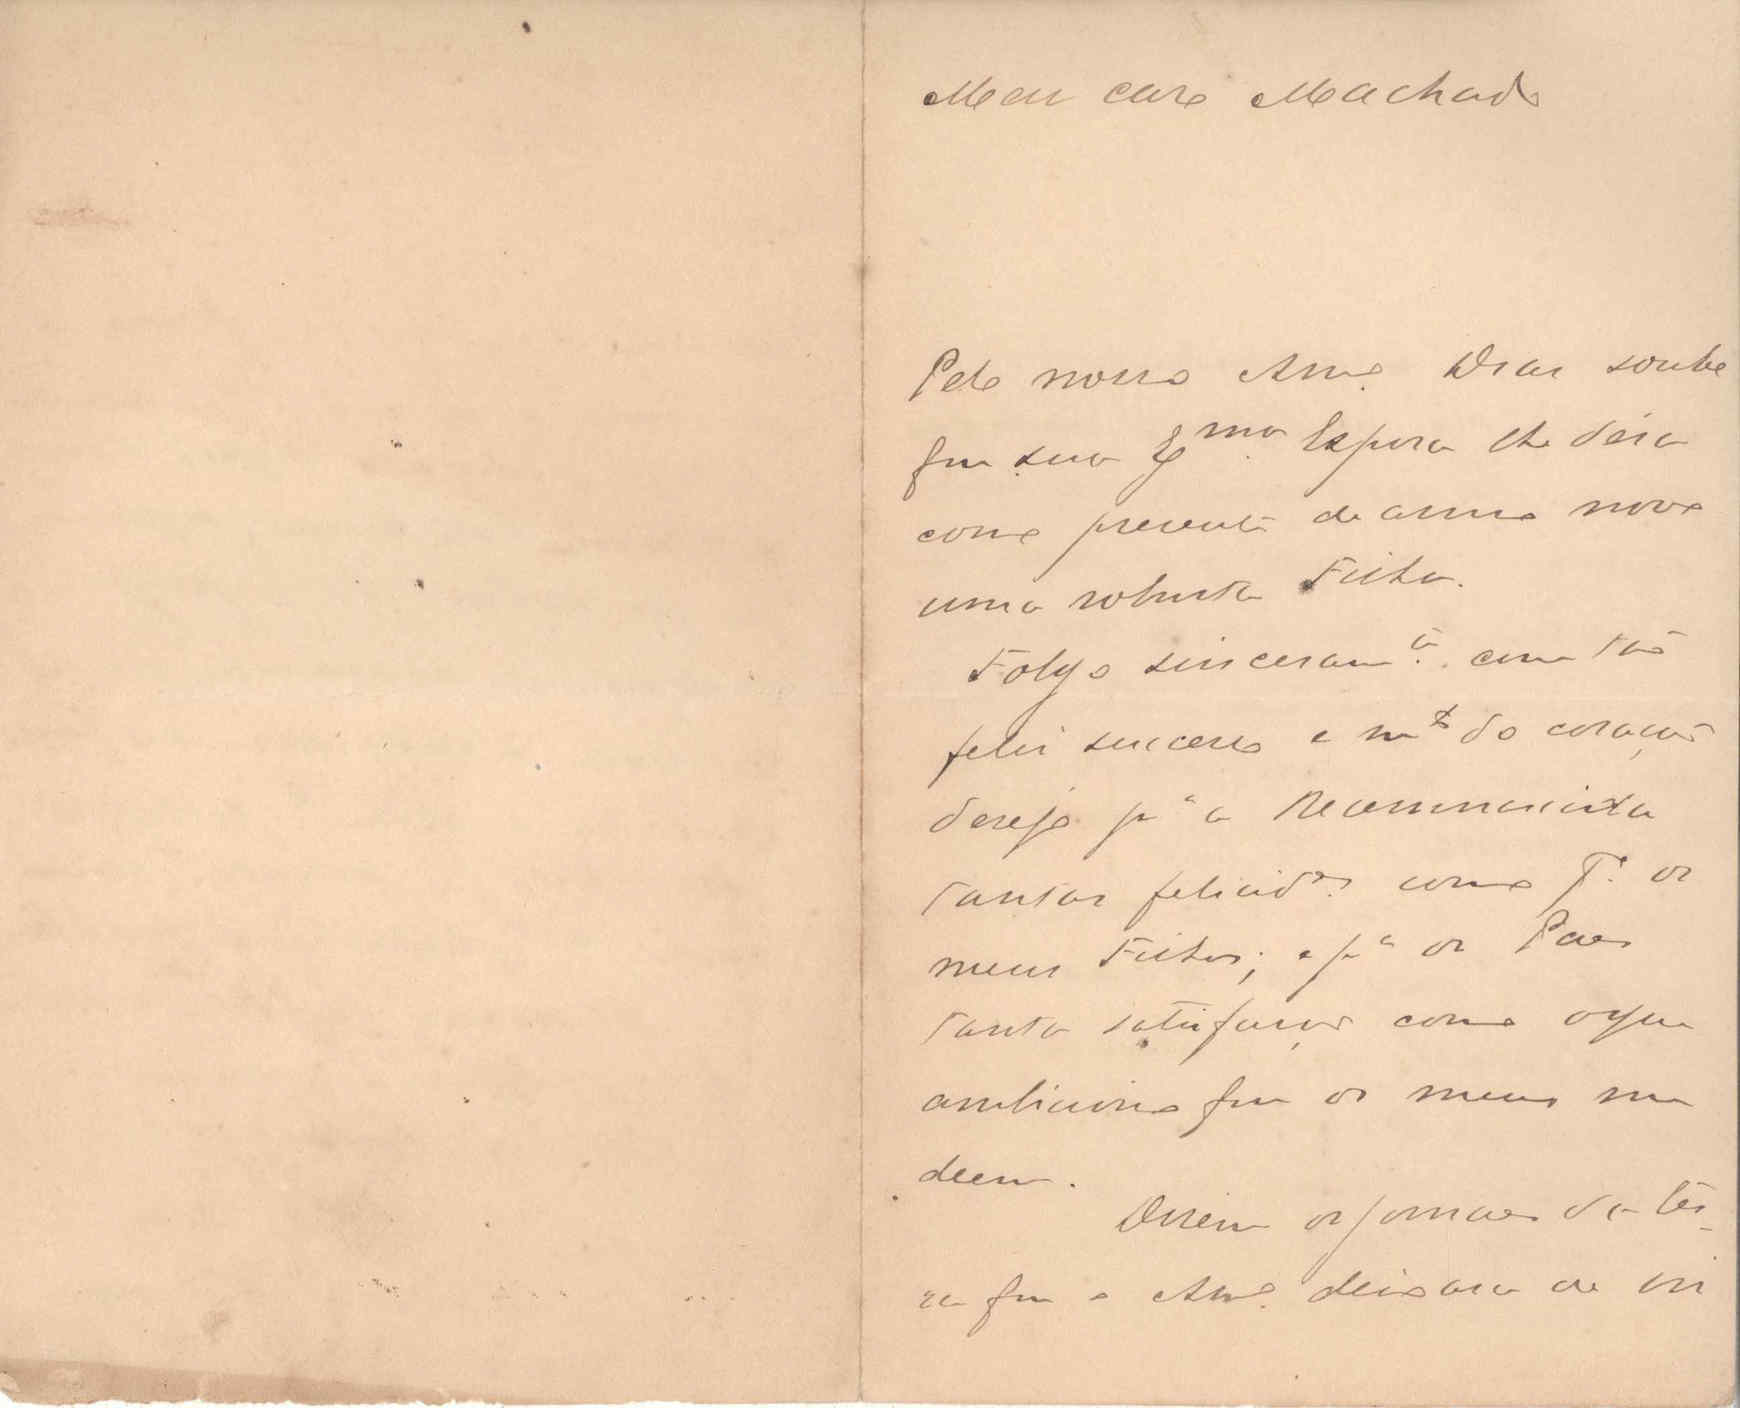 Meu caro Machado
Pelo nosso Amo. Dias soube
que sua Exma. Espoza lhe déra
como presente de anno novo
uma robusta Filha.
Folgo sinceramte. com tão
feliz successo e mto do coração
desejo pa a Recemnascida
tantas felicides. como pa. os
meus Filhos; e pa os Paes
tanta satisfação como a que
ambiciono que os meus me
deem.
Dizem os jornaes da ter-
ra que o Amo. deixara de